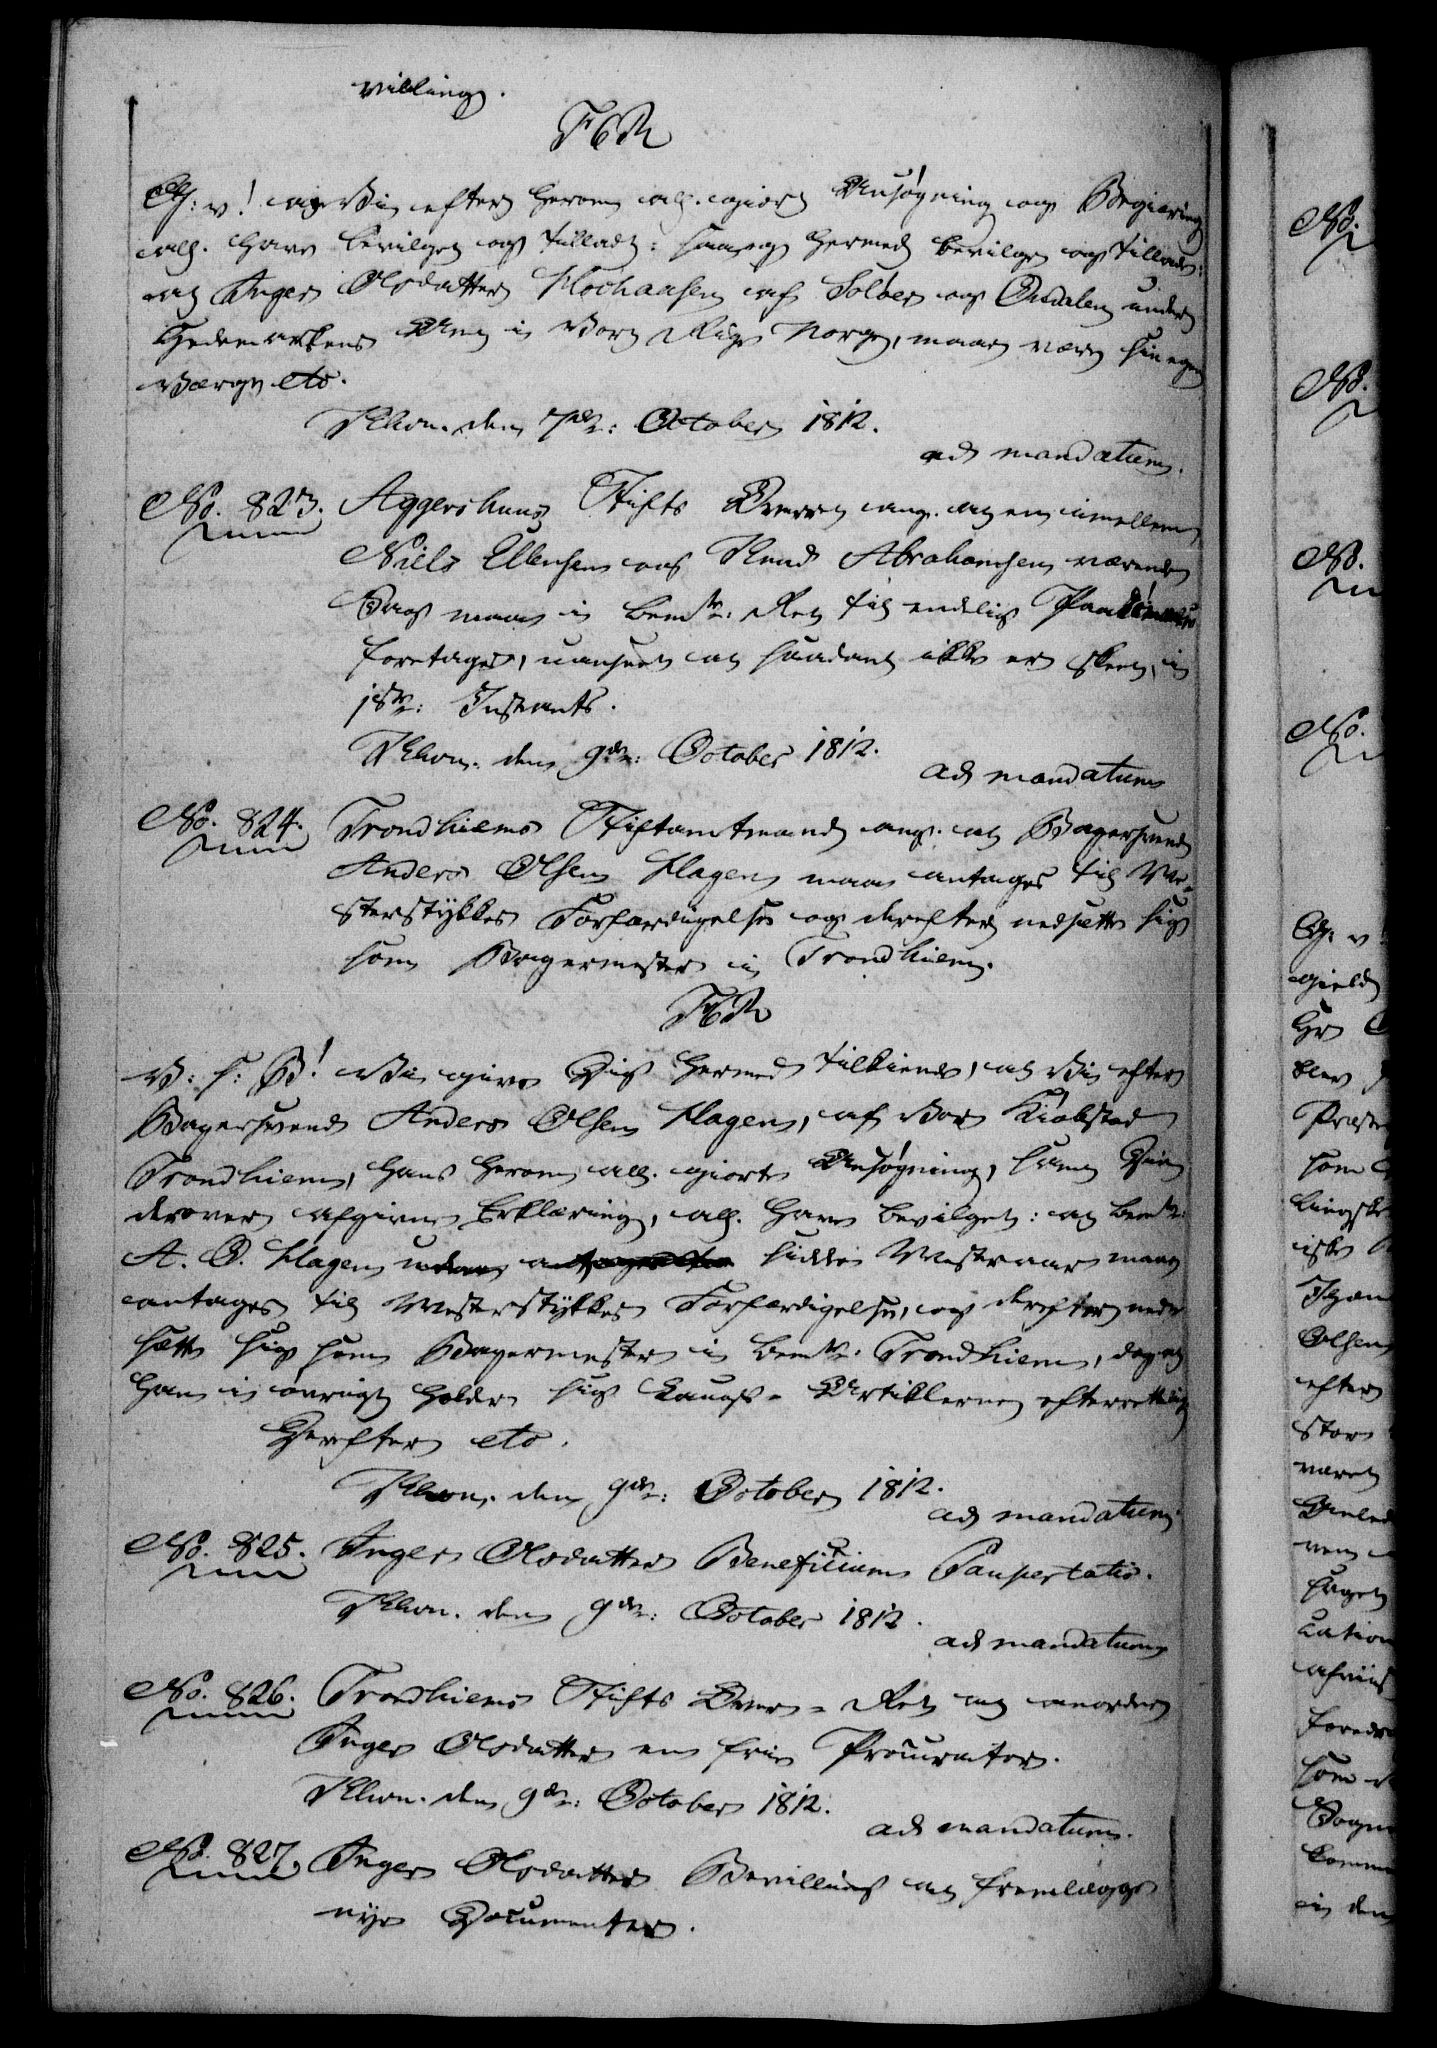 villing.
F6R
G: v! at Vi efter herom all. giort Ansøgning og Begiæring
all. have bevilget og tilladt: saa og hermed bevilge og tillade:
at Inger Olsdatter Mochausen af Soløer og Oudalen under
Hedemarkens Amt i Vort Rige Norge, maae være sin egen
Værge etc.
Khvn. den 7de: October 1812.
ad mandatum.
No. 823. Aggershuus Stifts Overret ang. at en imellem
Niels Ellensen og Knud Abrahamsen værende
Sag maae i bemte: Ret til endelig Paakiendelse
foretages, uanseet at saadant ikke er skeet i
1ste: Instants.
Khvn. den 9de: October 1812.
ad mandatum
No. 824. Trondhiems Stiftamtmand ang. at Bagersvend
Anders Olsen Hagen maae antages til Me-
sterstykkes Forfærdigelse og derefter nedsætte sig
som Bagermester i Trondhiem.
F6R
V: S: B! Vi give Dig hermed tilkiende, at Vi efter
Bagersvend Anders Olsen Hagen, af Vor Kiøbstad
Trondhiem, hans herom all. giorte Ansøgning, samt Din
derover afgivne Erklæring, all. have bevilget: at bemte:
A. O. Hagen uden siddet Mesteraar maae
antages til Mesterstykkes Forfærdigelse, og derefter ned-
sætte sig som Bagermester i bemte: Trondhiem, dog at
han i øvrigt holder sig Laugs-Artiklerne efterrettelig
Derefter etc.
Khvn. den 9de: October 1812.
ad mandatum
No. 825. Inger Olsdatter Beneficium Paupertatis.
Khvn. den 9de: October 1812.
ad mandatum
No. 826. Trondhiems Stifts Over-Ret at anordne
Inger Olsdatter en frie Procurator.
Khvn. den 9de: October 1812.
ad mandatum.
No. 827. Inger Olsdatter Bevilling at fremlægge
nye Documenter.